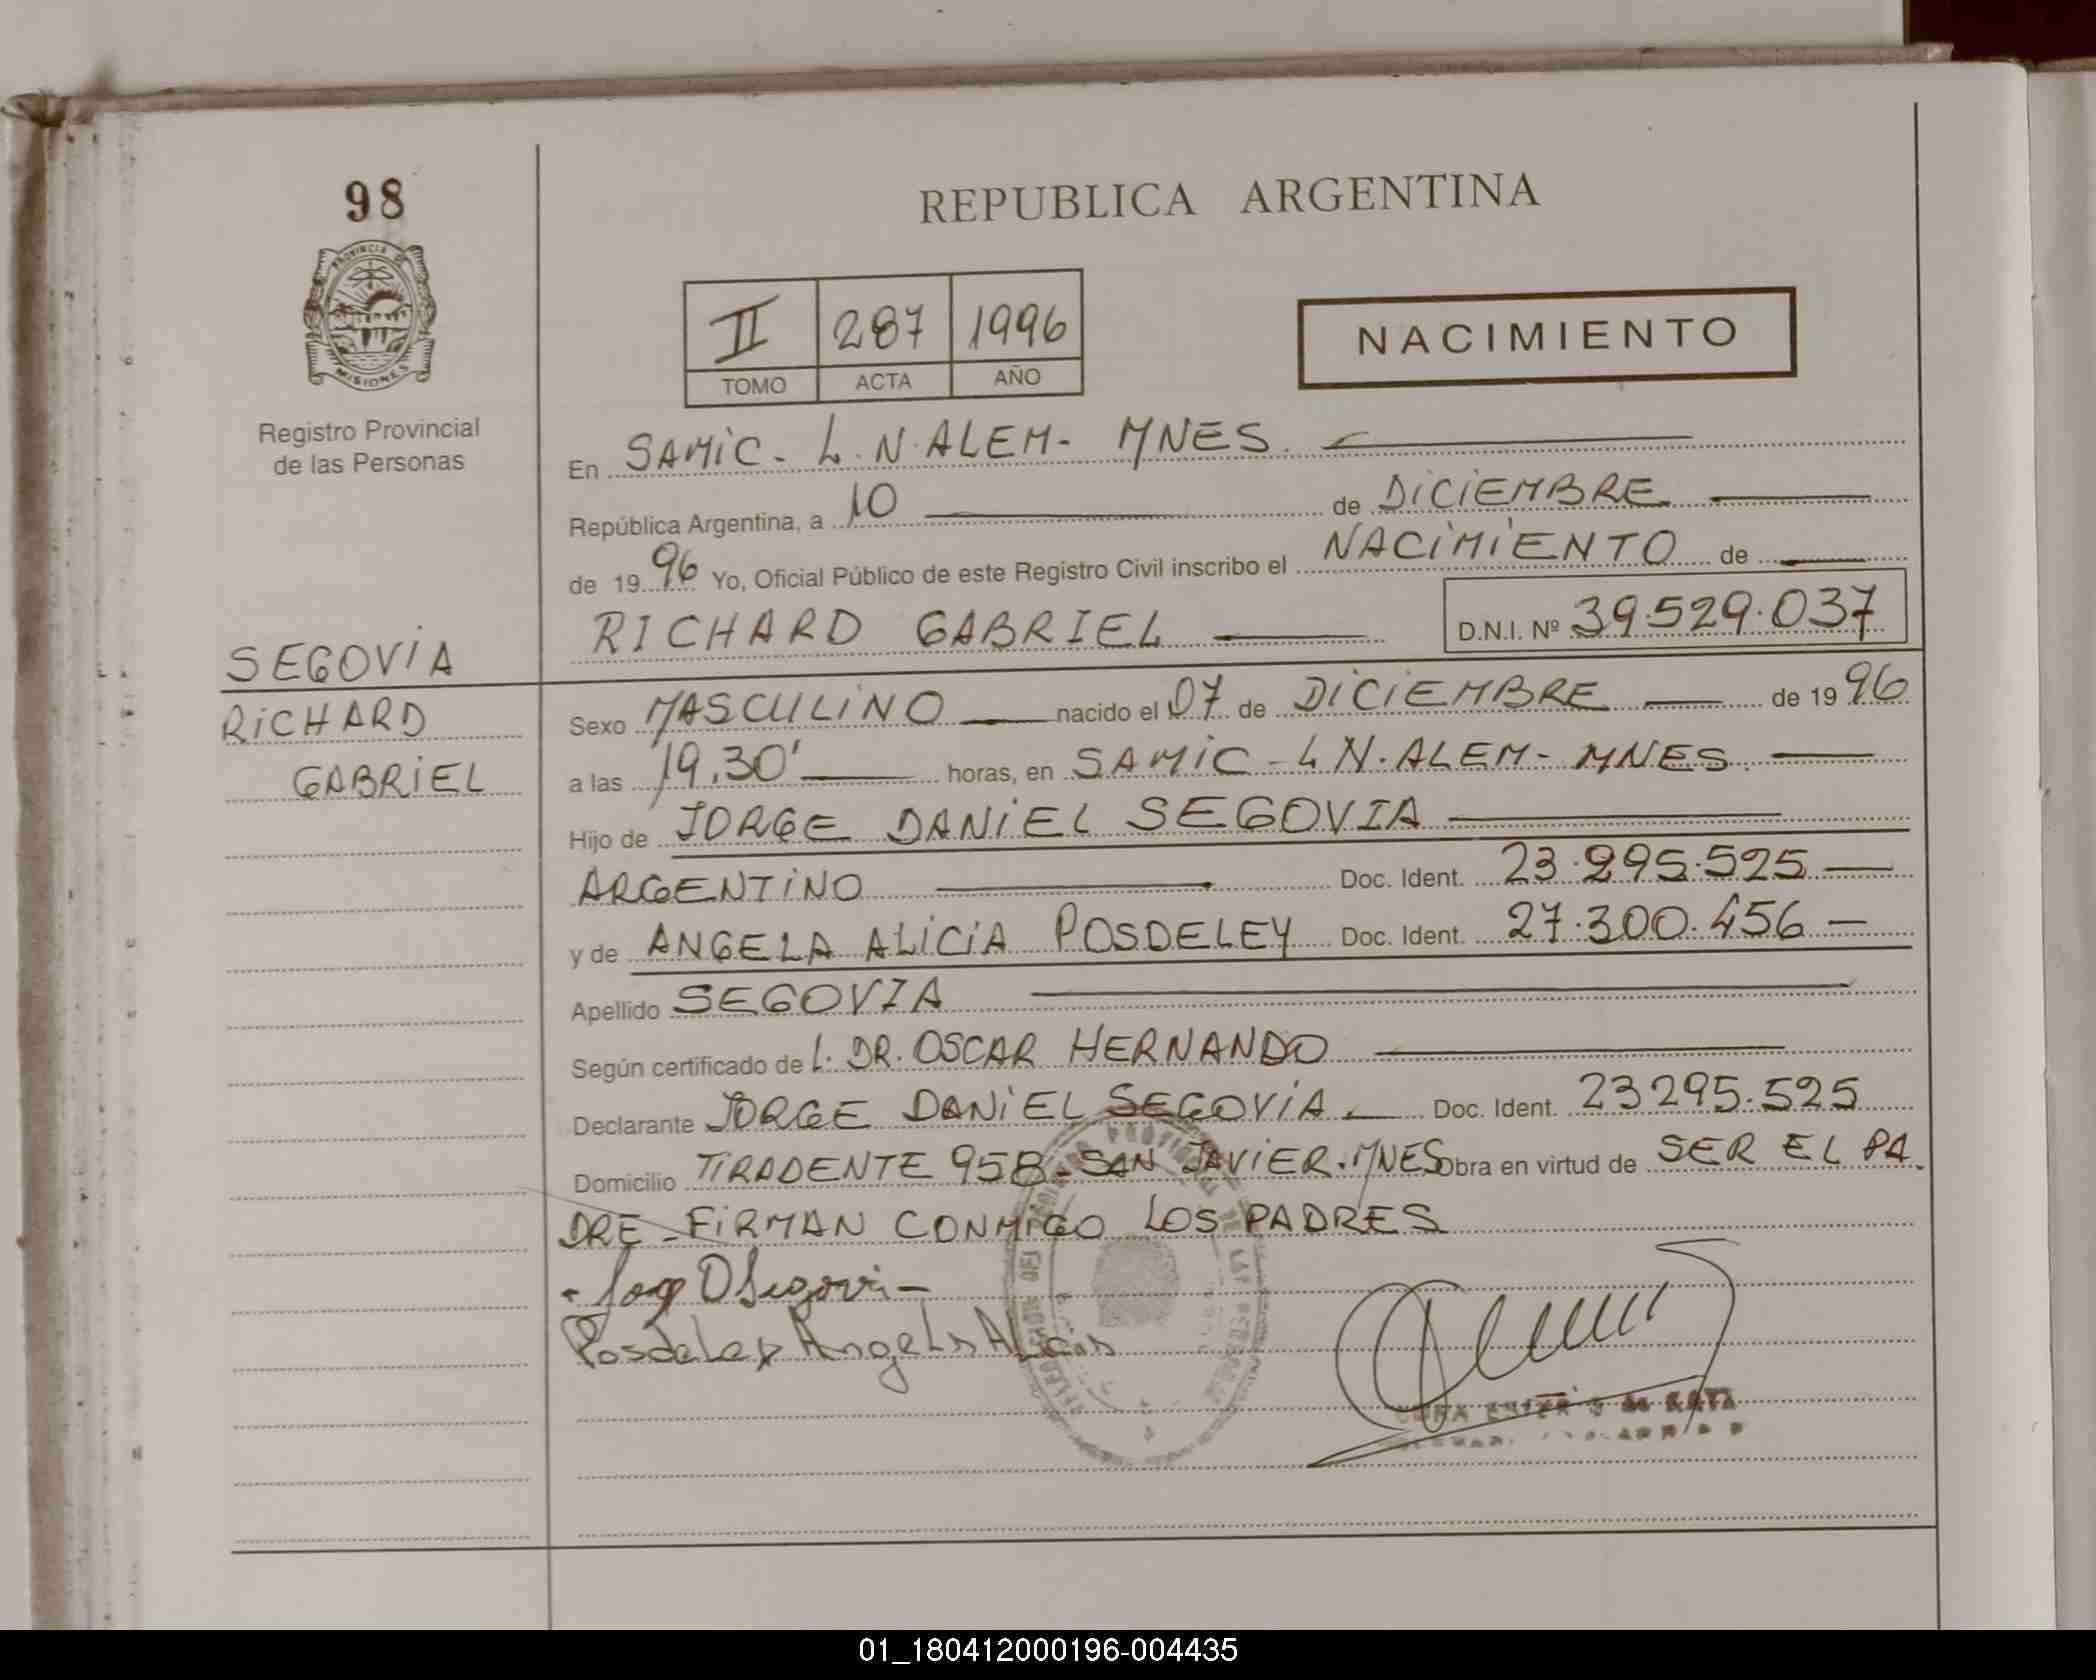 98
PROVINCIA DE
MISIONES
Registro Provincial
de las Personas
REPUBLICA ARGENTINA
II 287 1996
TOMO ACTA AÑO
NACIMIENTO
En SAMIC - L.N.ALEM - MNES.
República Argentina, a 10 de DICIEMBRE
de 1996 Yo, Oficial Público de este Registro Civil inscribo el NACIMIENTO de
RICHARD GABRIEL D.N.I. Nº 39.529.037
SEGOVIA
RICHARD
GABRIEL
Sexo MASCULINO nacido el 07 de DICIEMBRE de 1996
a las 19.30' horas, en SAMIC - L N. ALEM - MNES.
Hijo de JORGE DANIEL SEGOVIA
ARGENTINO Doc. Ident. 23.295.525 —
y de ANGELA ALICIA POSDELEY Doc. Ident. 27.300.456 —
Apellido SEGOVIA
Según certificado de L. DR. OSCAR HERNANDO
Declarante JORGE DANIEL SEGOVIA Doc. Ident. 23295.525
Domicilio TIRADENTE 958 - SAN JAVIER. MNES Obra en virtud de SER EL PA
DRE - FIRMAN CONMIGO LOS PADRES
Jorge D Segovi
Posdeley Angela Alicia
01_180412000196-004435